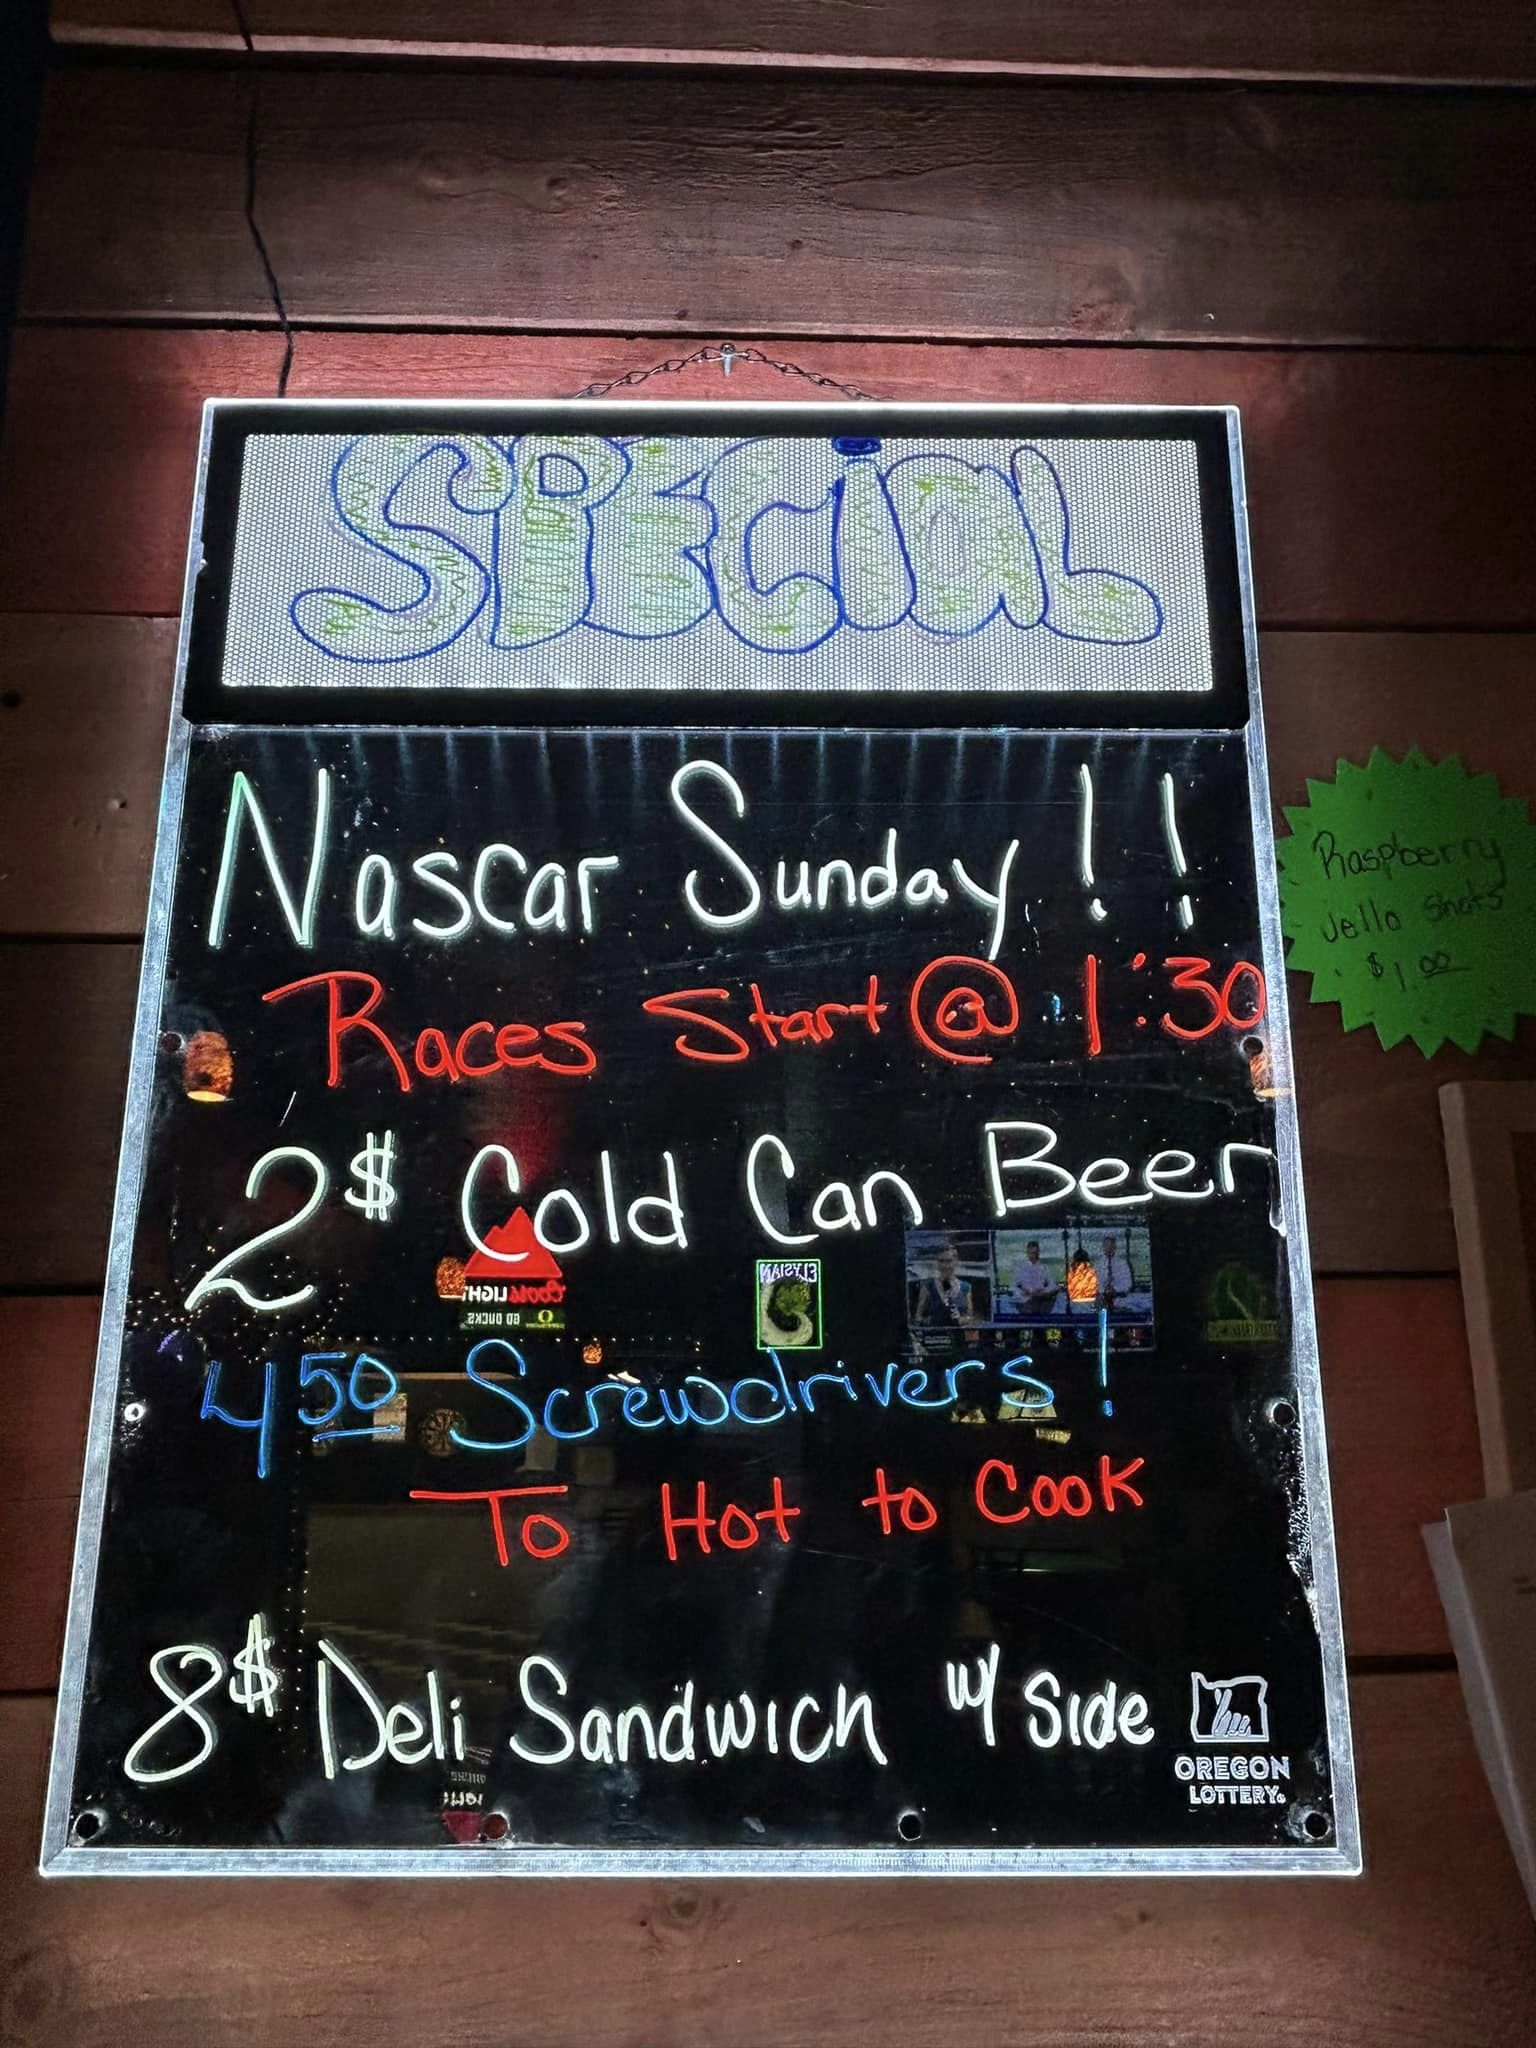 SPECiAL
Nascar Sunday!!
Races Start @ 1:30
2$ Cold Can Beer
4 50 Screwdrivers!
To Hot to Cook
8$ Deli Sandwich w/ Side
OREGON
LOTTERY
Raspberry
Jello Shots
$1.00
COORS LIGHT
GO DUCKS
ELYSIAN